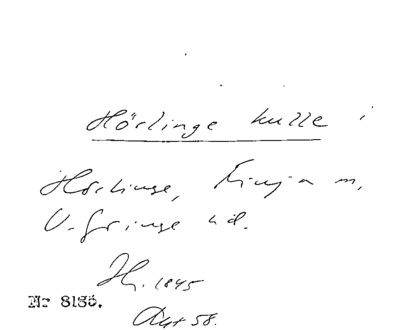 Hörlinge kulle i
Hörlinge, Finja sn,
V. Göinge hd.
Hr. 1845
Nr 8186.
Avt 58.